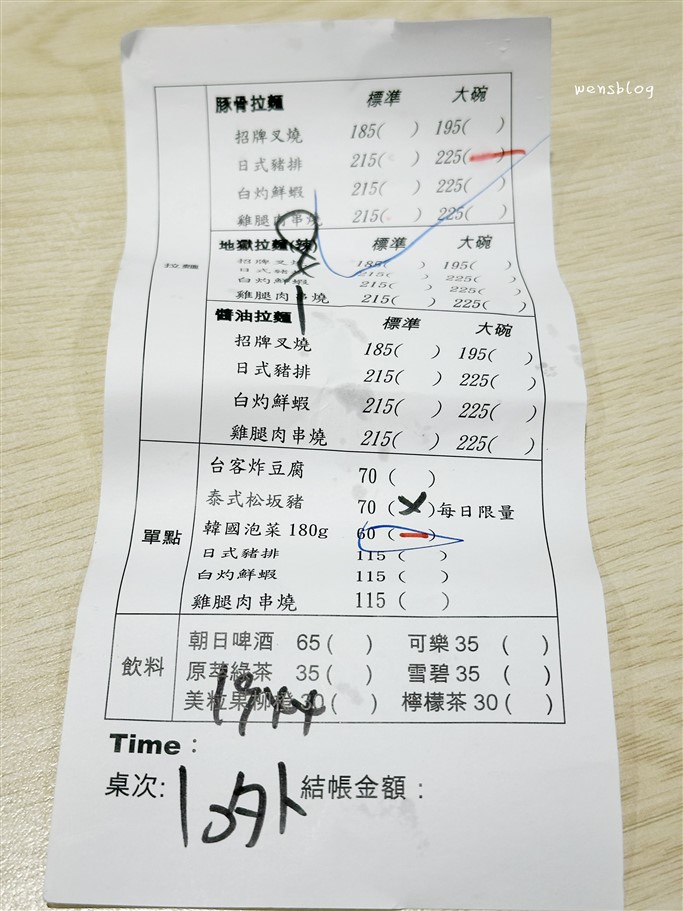 wensblog
豚骨拉麵 標準 大碗
招牌叉燒 185( ) 195( )
日式豬排 215( ) 225( )
白灼鮮蝦 215( ) 225( )
雞腿肉串燒 215( ) 225( )
地獄拉麵(辣) 標準 大碗
招牌叉燒 185( ) 195( )
拉麵
日式豬排 215( ) 225( )
白灼鮮蝦 215( ) 225( )
雞腿肉串燒 215( ) 225( )
醬油拉麵 標準 大碗
招牌叉燒 185( ) 195( )
日式豬排 215( ) 225( )
白灼鮮蝦 215( ) 225( )
雞腿肉串燒 215( ) 225( )
單點
台客炸豆腐 70 ( )
泰式松坂豬 70 ( )每日限量
韓國泡菜 180g 60 ( )
日式豬排 115 ( )
白灼鮮蝦 115 ( )
雞腿肉串燒 115 ( )
飲料
朝日啤酒 65 ( ) 可樂 35 ( )
原萃綠茶 35 ( ) 雪碧 35 ( )
美粒果柳橙 30 ( ) 檸檬茶 30 ( )
Time：
桌次: 結帳金額：